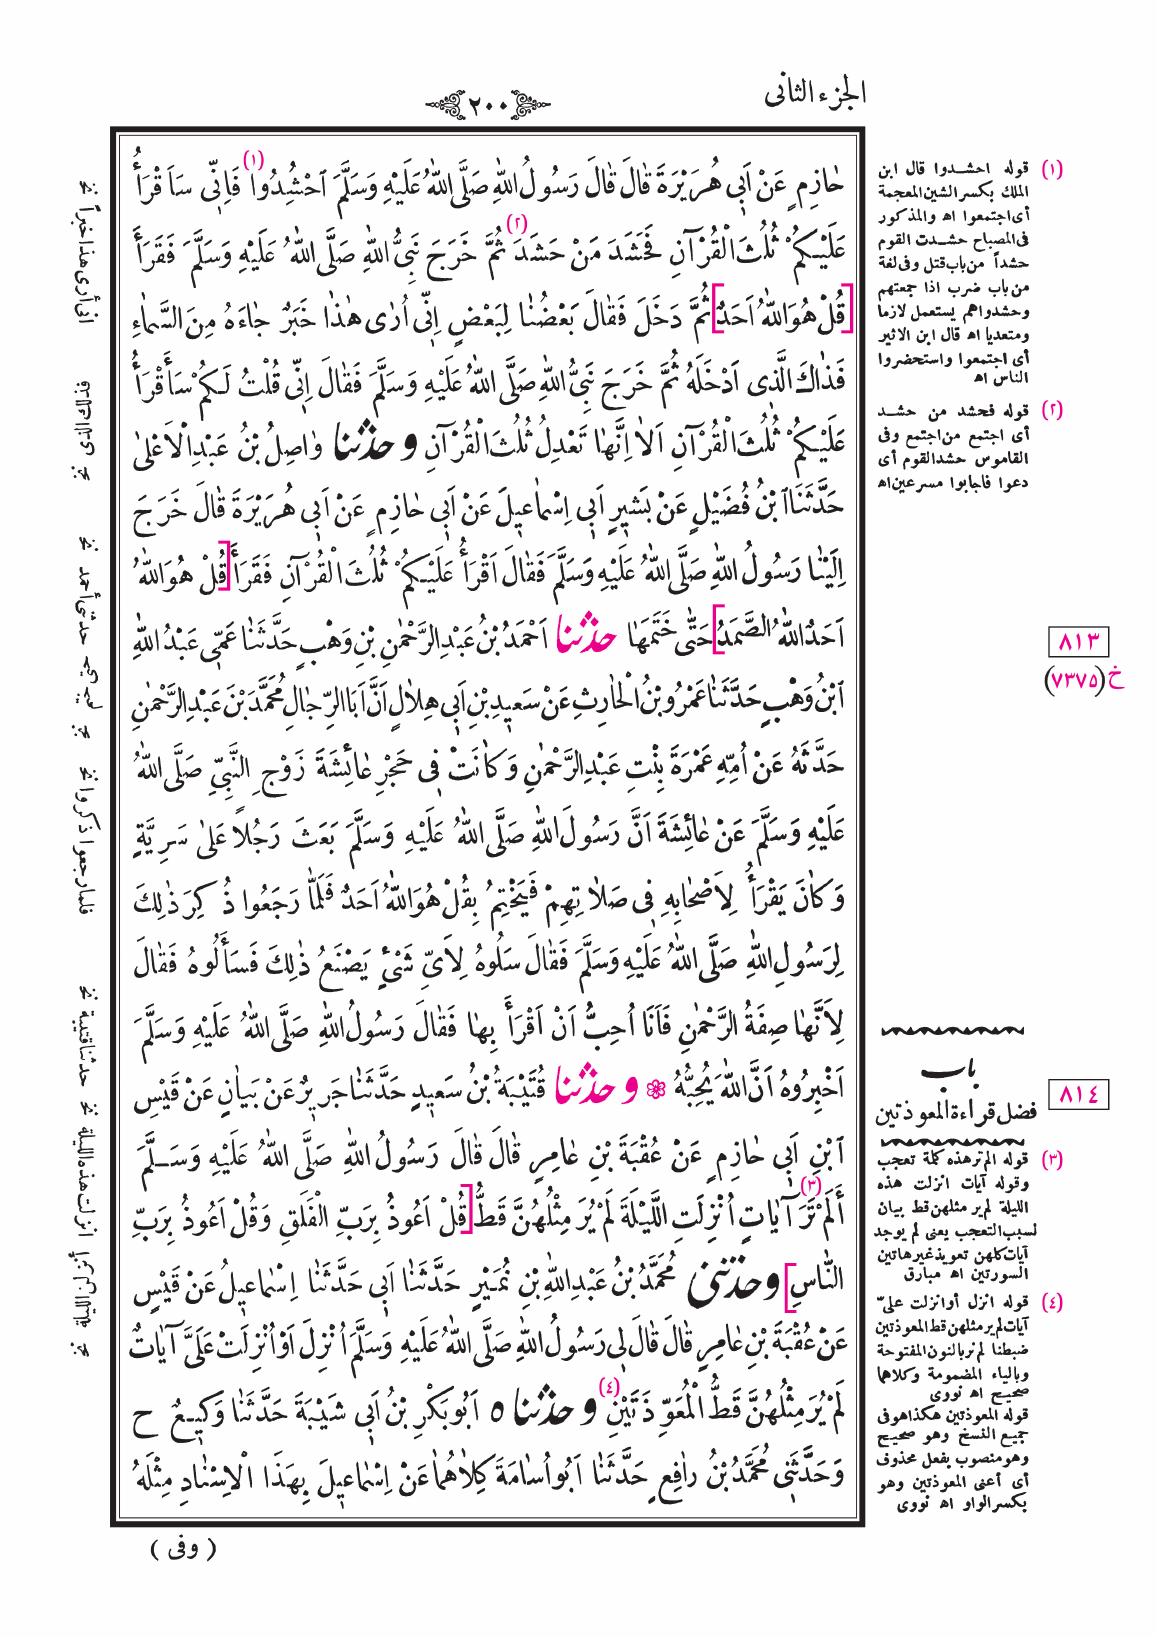 الجزء الثانى
٢٠٠
حَازِمٍ عَنْ اَبِى هُرَيْرَةَ قَالَ قَالَ رَسُولُ اللهِ صَلَّى اللهُ عَلَيْهِ وَسَلَّمَ اَحْشِدُوا (١) فَاِنِّى سَاَقْرَأُ
عَلَيْكُمْ ثُلُثَ الْقُرْآنِ فَحَشَدَ مَنْ حَشَدَ (٢) ثُمَّ خَرَجَ نَبِىُّ اللهِ صَلَّى اللهُ عَلَيْهِ وَسَلَّمَ فَقَرَأَ
[قُلْ هُوَ اللهُ اَحَدٌ] ثُمَّ دَخَلَ فَقَالَ بَعْضُنَا لِبَعْضٍ اِنِّى اُرٰى هٰذَا خَبَرٌ جَاءَهُ مِنَ السَّمَاءِ
فَذَاكَ الَّذِى اَدْخَلَهُ ثُمَّ خَرَجَ نَبِىُّ اللهِ صَلَّى اللهُ عَلَيْهِ وَسَلَّمَ فَقَالَ اِنِّى قُلْتُ لَكُمْ سَاَقْرَأُ
عَلَيْكُمْ ثُلُثَ الْقُرْآنِ اَلاَ اِنَّهَا تَعْدِلُ ثُلُثَ الْقُرْآنِ و حَدَّثَنَا وَاصِلُ بْنُ عَبْدِ الْاَعْلىٰ
حَدَّثَنَا اَبْنُ فُضَيْلٍ عَنْ بَشِيرٍ اَبِى اِسْمَاعِيلَ عَنْ اَبِى حَازِمٍ عَنْ اَبِى هُرَيْرَةَ قَالَ خَرَجَ
اِلَيْنَا رَسُولُ اللهِ صَلَّى اللهُ عَلَيْهِ وَسَلَّمَ فَقَالَ اَقْرَأُ عَلَيْكُمْ ثُلُثَ الْقُرْآنِ فَقَرَأَ [قُلْ هُوَ اللهُ
اَحَدٌ اللهُ الصَّمَدُ] حَتّٰى خَتَمَهَا حَدَّثَنَا اَحْمَدُ بْنُ عَبْدِ الرَّحْمٰنِ بْنِ وَهْبٍ حَدَّثَنَا عَمِّى عَبْدُ اللهِ
اَبْنُ وَهْبٍ حَدَّثَنَا عَمْرُو بْنُ الْحَارِثِ عَنْ سَعِيدِ بْنِ اَبِى هِلَالٍ اَنَّ اَبَا الرِّجَالِ مُحَمَّدَ بْنَ عَبْدِ الرَّحْمٰنِ
حَدَّثَهُ عَنْ اُمِّهِ عَمْرَةَ بِنْتِ عَبْدِ الرَّحْمٰنِ وَكَانَتْ فِى حَجْرِ عَائِشَةَ زَوْجِ النَّبِىِّ صَلَّى اللهُ
عَلَيْهِ وَسَلَّمَ عَنْ عَائِشَةَ اَنَّ رَسُولَ اللهِ صَلَّى اللهُ عَلَيْهِ وَسَلَّمَ بَعَثَ رَجُلاً عَلىٰ سَرِيَّةٍ
وَكَانَ يَقْرَأُ لِاَصْحَابِهِ فِى صَلَاتِهِمْ فَيَخْتِمُ بِقُلْ هُوَ اللهُ اَحَدٌ فَلَمَّا رَجَعُوا ذُكِرَ ذٰلِكَ
لِرَسُولِ اللهِ صَلَّى اللهُ عَلَيْهِ وَسَلَّمَ فَقَالَ سَلُوهُ لِاَىِّ شَىْءٍ يَصْنَعُ ذٰلِكَ فَسَأَلُوهُ فَقَالَ
لِاَنَّهَا صِفَةُ الرَّحْمٰنِ فَاَنَا اُحِبُّ اَنْ اَقْرَأَ بِهَا فَقَالَ رَسُولُ اللهِ صَلَّى اللهُ عَلَيْهِ وَسَلَّمَ
اَخْبِرُوهُ اَنَّ اللهَ يُحِبُّهُ ❁ و حَدَّثَنَا قُتَيْبَةُ بْنُ سَعِيدٍ حَدَّثَنَا جَرِيرٌ عَنْ بَيَانٍ عَنْ قَيْسِ
اَبْنِ اَبِى حَازِمٍ عَنْ عُقْبَةَ بْنِ عَامِرٍ قَالَ قَالَ رَسُولُ اللهِ صَلَّى اللهُ عَلَيْهِ وَسَلَّمَ
أَلَمْ تَرَ (٣) آيَاتٍ اُنْزِلَتِ اللَّيْلَةَ لَمْ يُرَ مِثْلُهُنَّ قَطُّ [قُلْ اَعُوذُ بِرَبِّ الْفَلَقِ وَقُلْ اَعُوذُ بِرَبِّ
النَّاسِ] وَحَدَّثَنِى مُحَمَّدُ بْنُ عَبْدِ اللهِ بْنِ نُمَيْرٍ حَدَّثَنَا اَبِى حَدَّثَنَا اِسْمَاعِيلُ عَنْ قَيْسٍ
عَنْ عُقْبَةَ بْنِ عَامِرٍ قَالَ قَالَ لِى رَسُولُ اللهِ صَلَّى اللهُ عَلَيْهِ وَسَلَّمَ اُنْزِلَ اَوْ اُنْزِلَتْ عَلَىَّ آيَاتٌ
لَمْ يُرَ مِثْلُهُنَّ قَطُّ الْمُعَوِّذَتَيْنِ (٤) و حَدَّثَنَا ٥ اَبُو بَكْرِ بْنُ اَبِى شَيْبَةَ حَدَّثَنَا وَكِيعٌ ح
وَحَدَّثَنِى مُحَمَّدُ بْنُ رَافِعٍ حَدَّثَنَا اَبُو اُسَامَةَ كِلَاهُمَا عَنْ اِسْمَاعِيلَ بِهَذَا الْاِسْنَادِ مِثْلَهُ
( وفى )
(١) قوله احشدوا قال ابن
الملك بكسر الشين المعجمة
أى اجتمعوا اه والمذكور
فى المصباح حشدت القوم
حشداً من باب قتل وفى لغة
من باب ضرب اذا جمعتهم
وحشدوا هم يستعمل لازما
ومتعديا اه قال ابن الاثير
أى اجتمعوا واستحضروا
الناس اه
(٢) قوله فحشد من حشد
أى اجتمع من اجتمع وفى
القاموس حشد القوم أى
دعوا فاجابوا مسرعين اه
٨١٣
خ (٧٣٧٥)
باب
فضل قراءة المعوذتين
٨١٤
(٣) قوله الم تر هذه كلمة تعجب
وقوله آيات انزلت هذه
الليلة لم ير مثلهن قط بيان
لسبب التعجب يعنى لم يوجد
آيات كلهن تعويذ غير هاتين
السورتين اه مبارق
(٤) قوله انزل أو انزلت علىّ
آيات لم ير مثلهن قط المعوذتين
ضبطنا لم نر بالنون المفتوحة
وبالياء المضمومة وكلاهما
صحيح اه نووى
قوله المعوذتين هكذا هو فى
جميع النسخ وهو صحيح
وهو منصوب بفعل محذوف
أى أعنى المعوذتين وهو
بكسر الواو اه نووى
انى أرى هذا خبراً نخ
نخ حدثنى أحمد
فلما رجعوا ذكروا نخ
حدثنا قتيبة نخ
انزلت هذه الليلة نخ